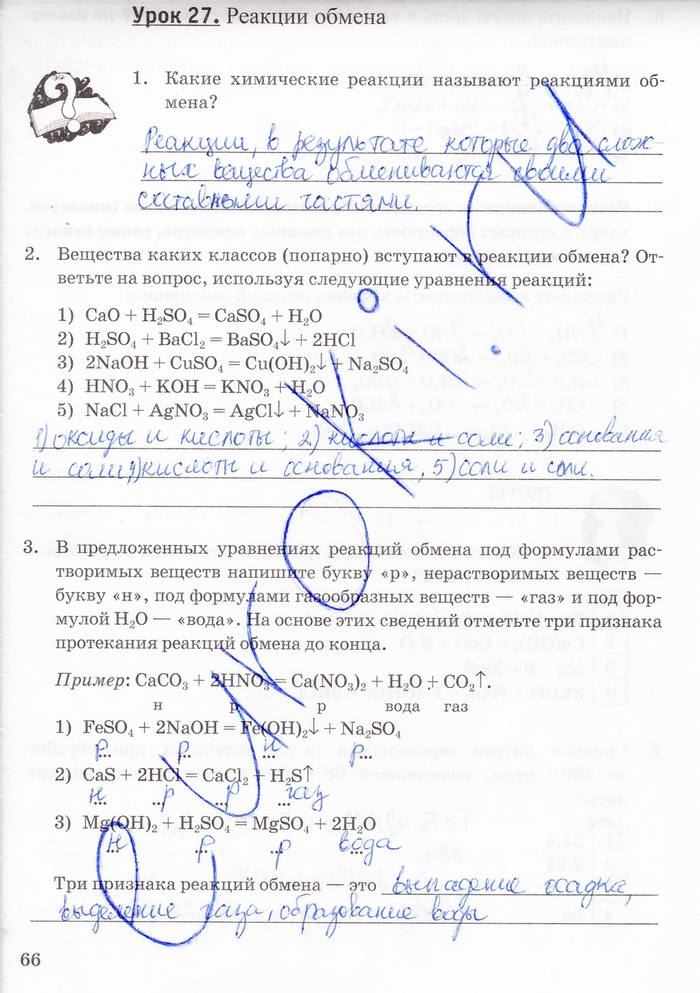 Урок 27. Реакции обмена
1. Какие химические реакции называют реакциями об-
мена?
Реакции, в результате которые два слож-
ных вещества обмениваются своими
составными частями.
2. Вещества каких классов (попарно) вступают в реакции обмена? От-
ветьте на вопрос, используя следующие уравнения реакций:
1) CaO + H₂SO₄ = CaSO₄ + H₂O
2) H₂SO₄ + BaCl₂ = BaSO₄↓ + 2HCl
3) 2NaOH + CuSO₄ = Cu(OH)₂↓ + Na₂SO₄
4) HNO₃ + KOH = KNO₃ + H₂O
5) NaCl + AgNO₃ = AgCl↓ + NaNO₃
1) оксиды и кислоты; 2) кислота и соли; 3) основания
и соли; кислоты и основания, 5) соли и соли.
3. В предложенных уравнениях реакций обмена под формулами рас-
творимых веществ напишите букву «р», нерастворимых веществ —
букву «н», под формулами газообразных веществ — «газ» и под фор-
мулой H₂O — «вода». На основе этих сведений отметьте три признака
протекания реакций обмена до конца.
Пример: CaCO₃ + 2HNO₃ = Ca(NO₃)₂ + H₂O + CO₂↑.
н р р вода газ
1) FeSO₄ + 2NaOH = Fe(OH)₂↓ + Na₂SO₄
р р н р
2) CaS + 2HCl = CaCl₂ + H₂S↑
н р р газ
3) Mg(OH)₂ + H₂SO₄ = MgSO₄ + 2H₂O
н р р вода
Три признака реакций обмена — это выпадение осадка,
выделение газа, образование воды
66